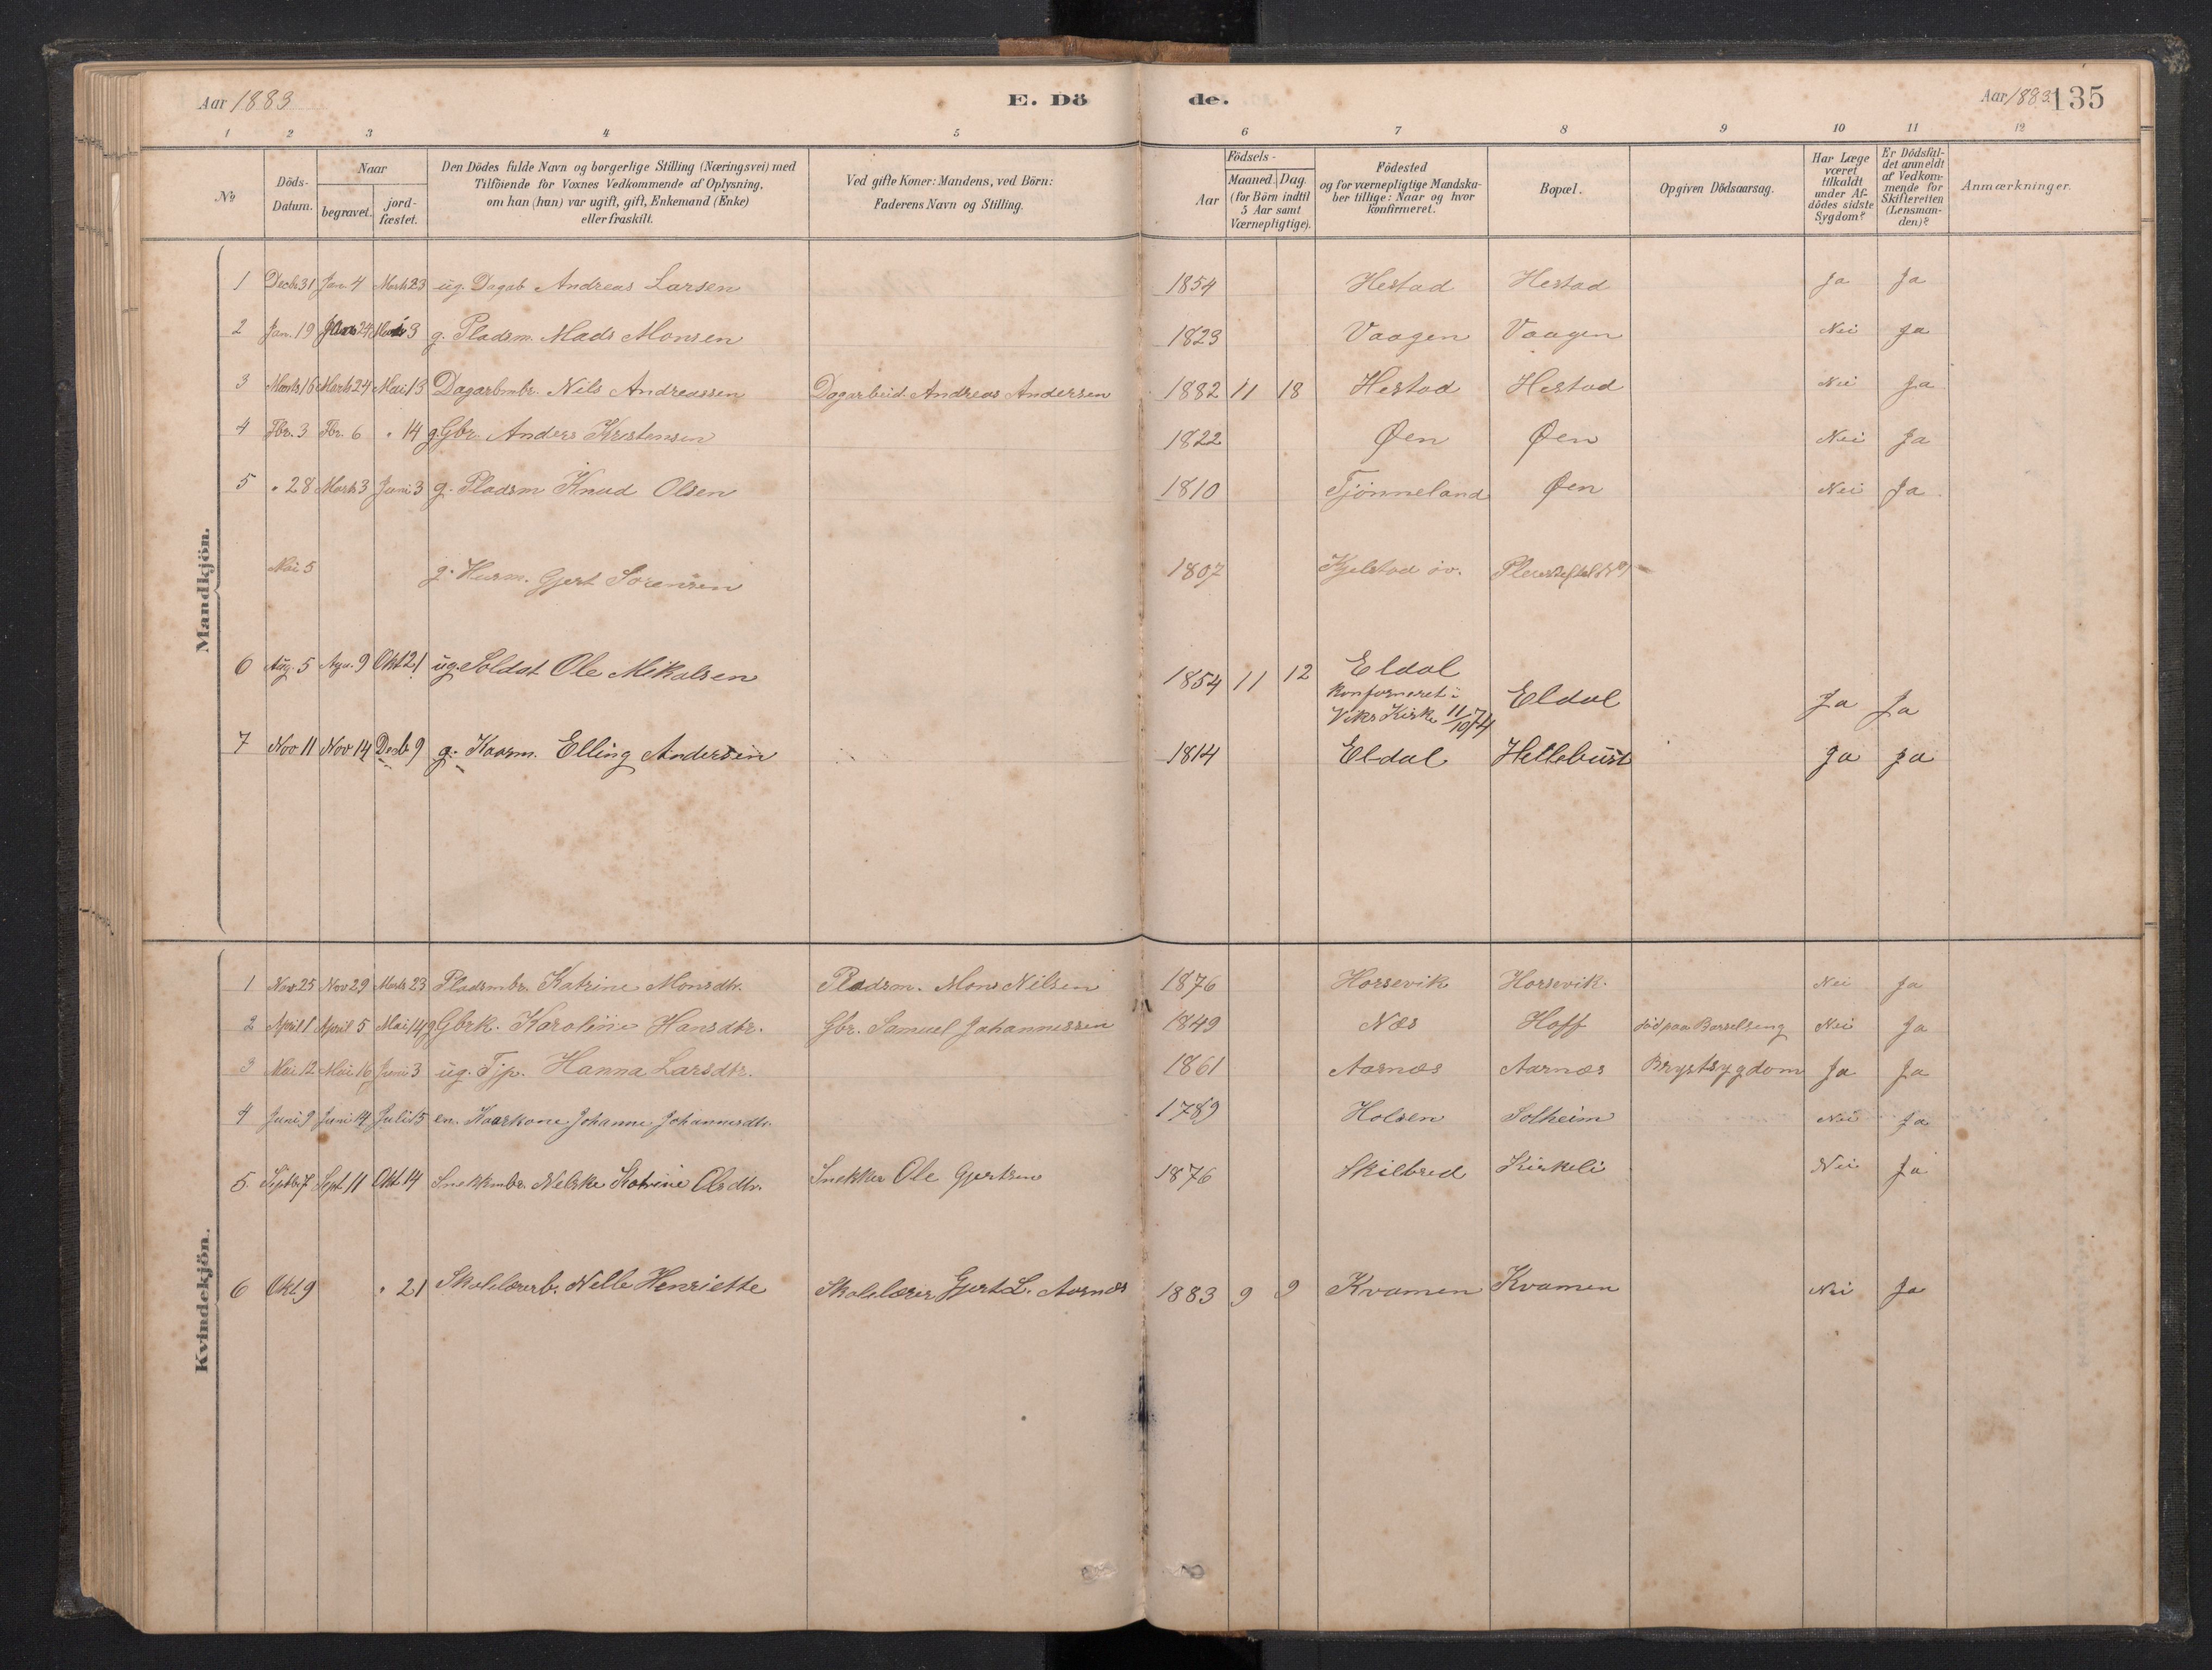 Aar 1883
E. Dö
de.
Aar 1883. 135
1 2 3 4 5 6 7 8 9 10 11 12
No
Döds-Datum.
Naar
begravet. jord-fæstet.
Den Dödes fulde Navn og borgerlige Stilling (Næringsvei) med
Tilföiende for Voxnes Vedkommende af Oplysning,
om han (hun) var ugift, gift, Enkemand (Enke)
eller fraskilt.
Ved gifte Koner: Mandens, ved Börn:
Faderens Navn og Stilling.
Aar
Födsels-
Maaned. Dag.
(for Börn indtil
5 Aar samt
Værnepligtige).
Födested
og for værnepligtige Mandska-
ber tillige: Naar og hvor
konfirmeret.
Bopæl.
Opgiven Dödsaarsag.
Har Læge
været
tilkaldt
under Af-
dödes sidste
Sygdom?
Er Dödsfal-
det anmeldt
af Vedkom-
mende for
Skifteretten
(Lensman-
den)?
Anmærkninger.
Mandkjön.
1 Decbr 31 Jan 4 Marts 23 ug. Dagab Andreas Larsen 1854 Hestad Hestad Ja Ja
2 Jan. 19 Jan 24 3 g. Pladsm. Mads Monsen 1823 Vaagen Vaagen Nei Ja
3 Marts 16 Marts 24 Mai 13 Dagarbmbr. Nils Andreassen Dagarbeid. Andreas Andersen 1882 11 18 Hestad Hestad Nei Ja
4 Fbr. 3 Fbr. 6 " 14 g. Gbr. Anders Kristensen 1822 Øen Øen Nei Ja
5 " 28 Marts 3 Juni 3 g. Pladsm Knud Olsen 1810 Tjönneland Øen Nei Ja
Mai 5 g. Husm. Gjert Sorensen 1807 Kjelstad öv.
6 Aug. 5 Agu. 9 Okt 21 ug. Soldat Ole Mikalsen 1854 11 12 Eldal
konfirmeret i
Viks Kirke 11/10 74
Eldal Ja Ja
7 Nov 11 Nov 14 Decb 9 g. Kaarm. Elling Andersen 1814 Eldal Hellebust Ja Ja
Kvindekjön.
1 Nov. 25 Nov 29 Marts 23 Pladsmbr. Katrine Monsdtr. Pladsm. Mons Nilsen 1876 Horsevik Horsevik. Nei Ja
2 April 1 April 5 Mai 14 g Gbrk. Karoline Hansdtr. Gbr. Samuel Johannessen 1849 Næs Hoff död paa Barselseng Nei Ja
3 Mai 12 Mai 16 Juni 3 ug. Tjp. Hanna Larsdtr. 1861 Aarnæs Aarnæs Brystsygdom Ja Ja
4 Juni 9 Juni 14 Juli 15 en. Kaarkone Johanne Johannesdtr. 1789 Holsen Solheim Nei Ja
5. Septbr 7 Sept 11 Okt. 14 Snekkmbr. Nelske Katrine Olsdtr. Snekker Ole Gjertsen 1876 Skilbred Kirkeli Nei Ja
6 Okt. 9 " 21 Skolelærerb. Nelle Henriette Skolelærer Gjert L. Aarnæs 1883 9 9 Kvamen Kvamen Nei Ja